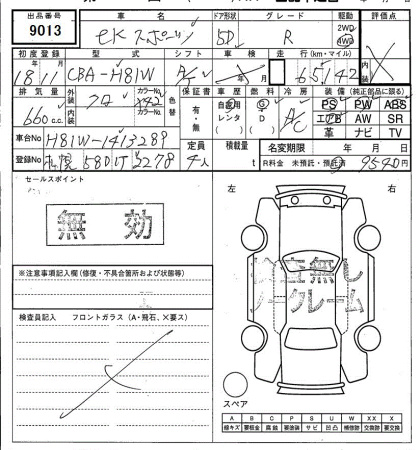 出品番号 車名 ドア形状 グレード 駆動 評価点
9013 eKスポーツ 5D R 2WD 4WD
初度登録 型式 シフト 車検 走行(km・マイル)
18 11 CBA-H81W A/T 年 月 65142
排気量 外装 カラーNo. 色替 保証書 車歴 燃料 冷房 装備(純正部品に限る)
660 c.c. クロ X42 有・無 自家用 レンタ G D A/C PS PW ABS
内装 カラーNo. エアB AW SR
革 ナビ TV
車台No H81W-1413289 定員 積載量 名変期限 年 月 日
登録No 札幌 580 
2278 4人 t R料金 未預託・預託済 9540円
セールスポイント
無効
左 右
※注意事項記入欄(修復・不具合箇所および状態等)
検査無し
ノークレーム
検査員記入 フロントガラス(A・飛石、×要ス)
スペア
A B C P S U W XX X
線キズ 要板金 腐蝕 要塗装 サビ 凹凸 補修跡 交換跡 要交換